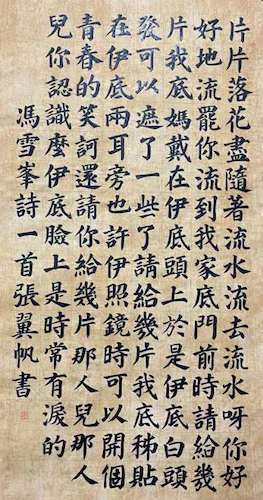 片片落花盡隨著流水流去流水呀你好
好地流罷你流到我家底門前時請給幾
片我底媽戴在伊底頭上於是伊底白頭
發可以遮了一些了請給幾片我底秭貼
在伊底兩耳旁也許伊照鏡時可以開個
青春的笑訶還請你給幾片那人兒那人
兒你認識麼伊底臉上是時常有淚的
馮雪峯詩一首張翼帆書